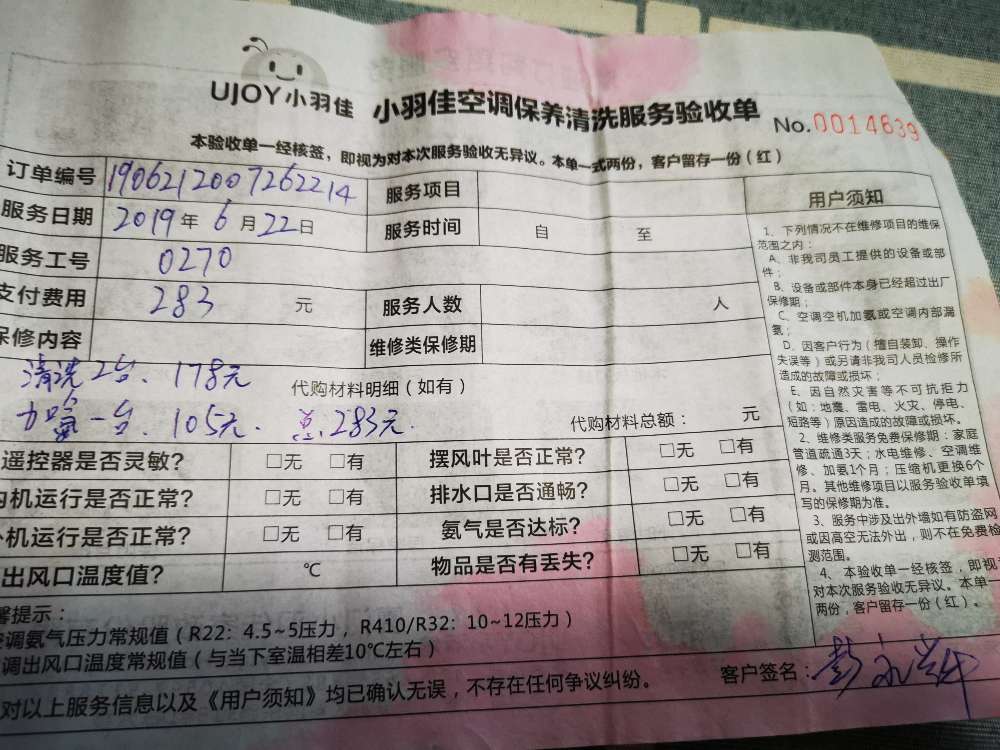 UJOY小羽佳 小羽佳空调保养清洗服务验收单
No.0014639
本验收单一经核签，即视为对本次服务验收无异议。本单一式两份，客户留存一份（红）
订单编号 1906212007262214 服务项目
服务日期 2019年6月22日 服务时间 自 至
服务工号 0270
支付费用 283 元 服务人数 人
保修内容 维修类保修期
清洗2台、178元 代购材料明细（如有）
一台、105元. 总:283元. 代购材料总额： 元
遥控器是否灵敏？ □无 □有 摆风叶是否正常？ □无 □有
内机运行是否正常？ □无 □有 排水口是否通畅？ □无 □有
外机运行是否正常？ □无 □有 氨气是否达标？ □无 □有
出风口温度值？ ℃ 物品是否有丢失？ □无 □有
馨提示：
空调氨气压力常规值（R22：4.5~5压力，R410/R32：10~12压力）
调出风口温度常规值（与当下室温相差10℃左右）
对以上服务信息以及《用户须知》均已确认无误，不存在任何争议纠纷。
客户签名：
用户须知
1、下列情况不在维修项目的维保
范围之内：
A、非我司员工提供的设备或部
件；
B、设备或部件本身已经超过出厂
保修期；
C、空调空机加氨或空调内部漏
氨；
D、因客户行为（擅自装卸、操作
失误等）或另请非我司人员检修所
造成的故障或损坏；
E、因自然灾害等不可抗拒力
（如：地震、雷电、火灾、停电、
短路等）原因造成的故障或损坏。
2、维修类服务免费保修期：家庭
管道疏通3天；水电维修、空调维
修、加氨1个月；压缩机更换6个
月。其他维修项目以服务验收单填
写的保修期为准。
3、服务中涉及出外墙如有防盗网
或因高空无法外出，则不在免费检
测范围。
4、本验收单一经核签，即视为
对本次服务验收无异议。本单一
两份，客户留存一份（红）。